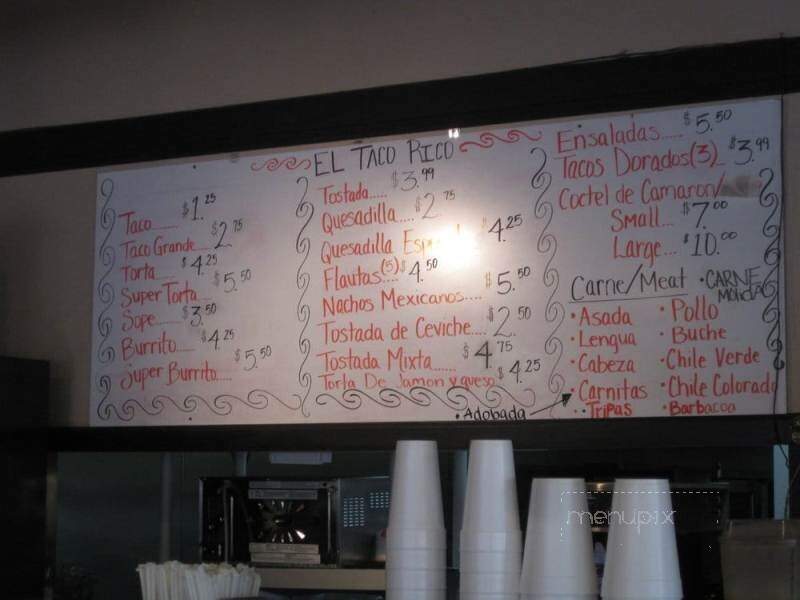 EL TACO RICO
Taco...... $1.25
Taco Grande.... $2.75
Torta...... $4.25
Super Torta... $5.50
Sope...... $3.50
Burrito..... $4.25
Super Burrito..... $5.50
Tostada..... $3.99
Quesadilla.... $2.75
Quesadilla $4.25
Flautas(5).. $4.50
Nachos Mexicanos.... $5.50
Tostada de Ceviche... $2.50
Tostada Mixta...... $4.75
Torta De Jamon y queso $4.25
Ensaladas.... $5.50
Tacos Dorados(3).. $3.99
Coctel de Camaron/
Small... $7.00
Large... $10.00
Carne/Meat
•CARNE
•Asada
•Lengua
•Cabeza
•Carnitas
•Tripas
•Adobada
•Pollo
•Buche
•Chile Verde
•Chile Colorado
•Barbacoa
menupix